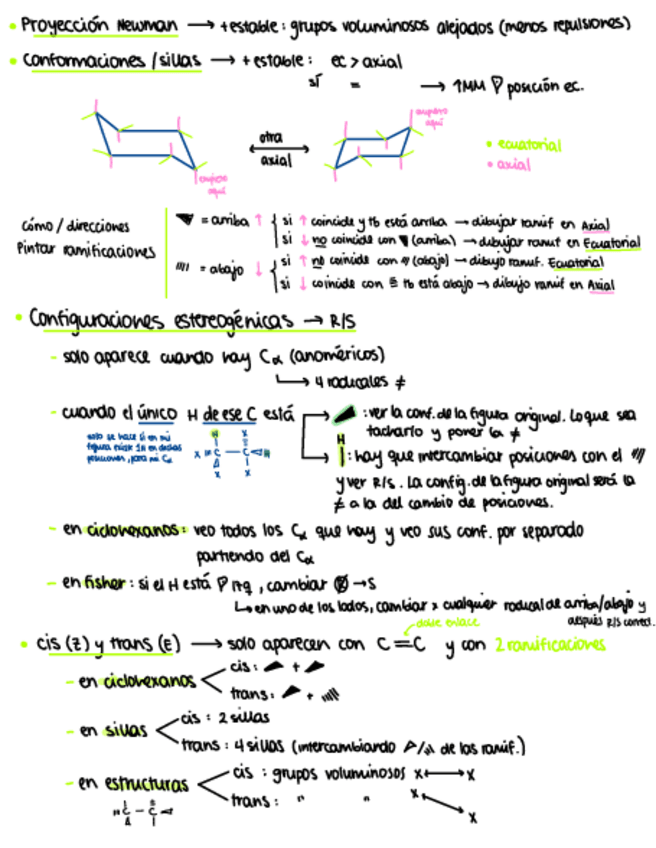 • Proyección Newman → +estable: grupos voluminosos alejados (menos repulsiones)
• Conformaciones/sillas → +estable: ec > axial
sí =
→ ↑MM P posición ec.
otra
axial
empiezo
aquí
empiezo
aquí
• ecuatorial
• axial
cómo / direcciones
Pintar ramificaciones
= arriba ↑ { si ↑ coincide y tb está arriba → dibujar ramif en Axial
si ↓ no coincide con (arriba) → dibujar ramif en Ecuatorial
= abajo ↓ { si ↑ no coincide con (abajo) → dibujo ramif. Ecuatorial
si ↓ coincide con tb está abajo → dibujo ramif en Axial
• Configuraciones estereogénicas → R/S
- solo aparece cuando hay Cα (anoméricos)
↳ 4 radicales ≠
- cuando el único H de ese C está
: ver la conf. de la figura original. Lo que sea
tacharlo y poner la ≠
H
: hay que intercambiar posiciones con el
y ver R/S. La config. de la figura original será la
≠ a la del cambio de posiciones.
solo se hace si en mi
figura existe 1H en dichas
posiciones, para mi Cα
H X
X C — C H
X X
- en ciclohexanos: veo todos los Cα que hay y veo sus conf. por separado
partiendo del Cα
- en fisher: si el H está P izq, cambiar R → S
↳ en uno de los lados, cambiar x cualquier radical de arriba/abajo y
después R/S correct.
• cis (Z) y trans (E) → solo aparecen con C=C y con 2 ramificaciones
doble enlace
- en ciclohexanos
cis: +
trans: +
- en sillas
cis: 2 sillas
trans: 4 sillas (intercambiando / de las ramif.)
- en estructuras
cis: grupos voluminosos X ↔ X
trans: " " X ↔ X
H C — C